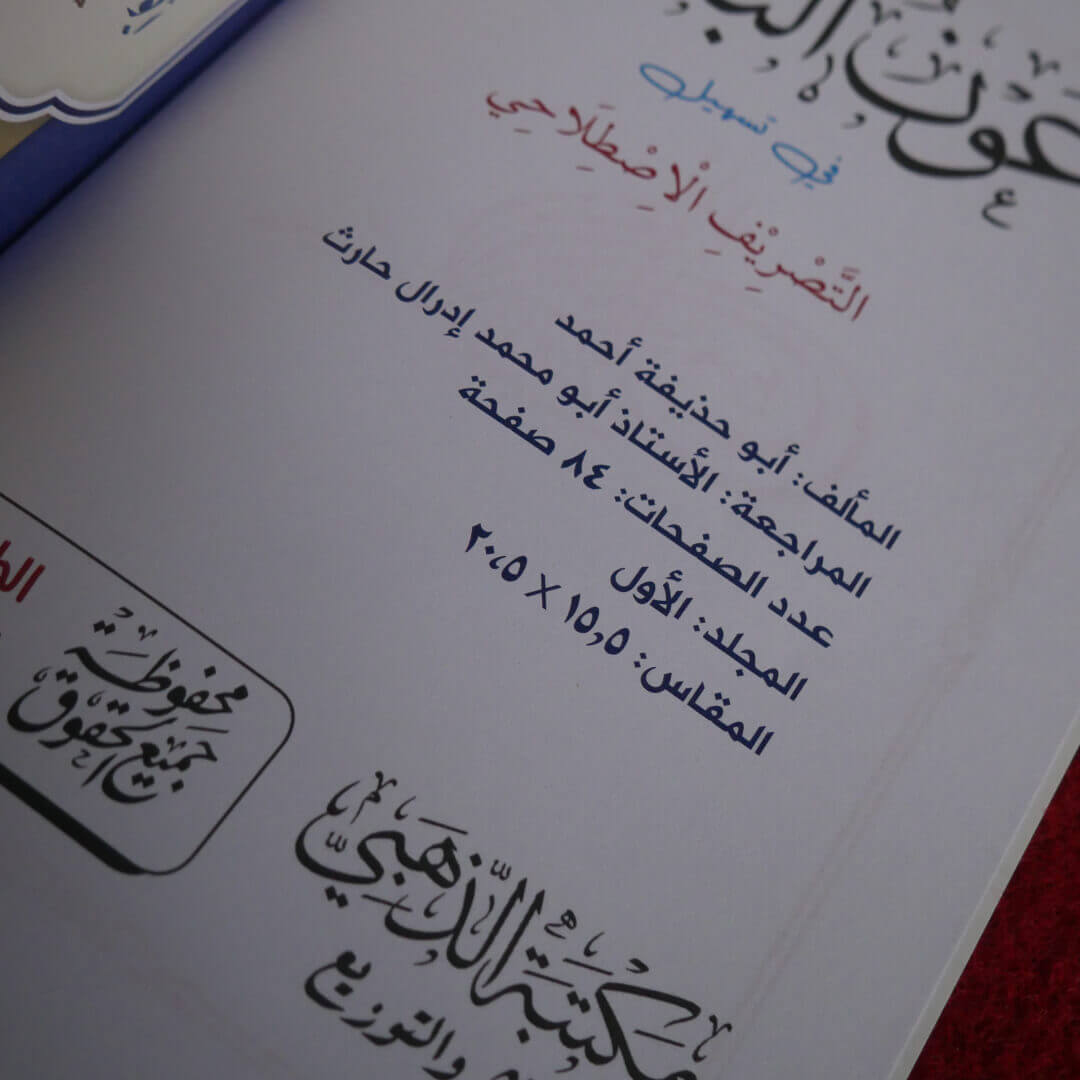 عون
في تسهيل
التَّصْرِيْفِ الْاِصْطِلَاحِي
المألف: أبو حذيفة أحمد
المراجعة: الأستاذ أبو محمد إدرال حارث
عدد الصفحات: ٨٤ صفحة
المجلد: الأول
المقاس: ١٥,٥ × ٢٠,٥
جميع الحقوق
محفوظة
مكتبة الذَّهَبِيّ
والتوزيع